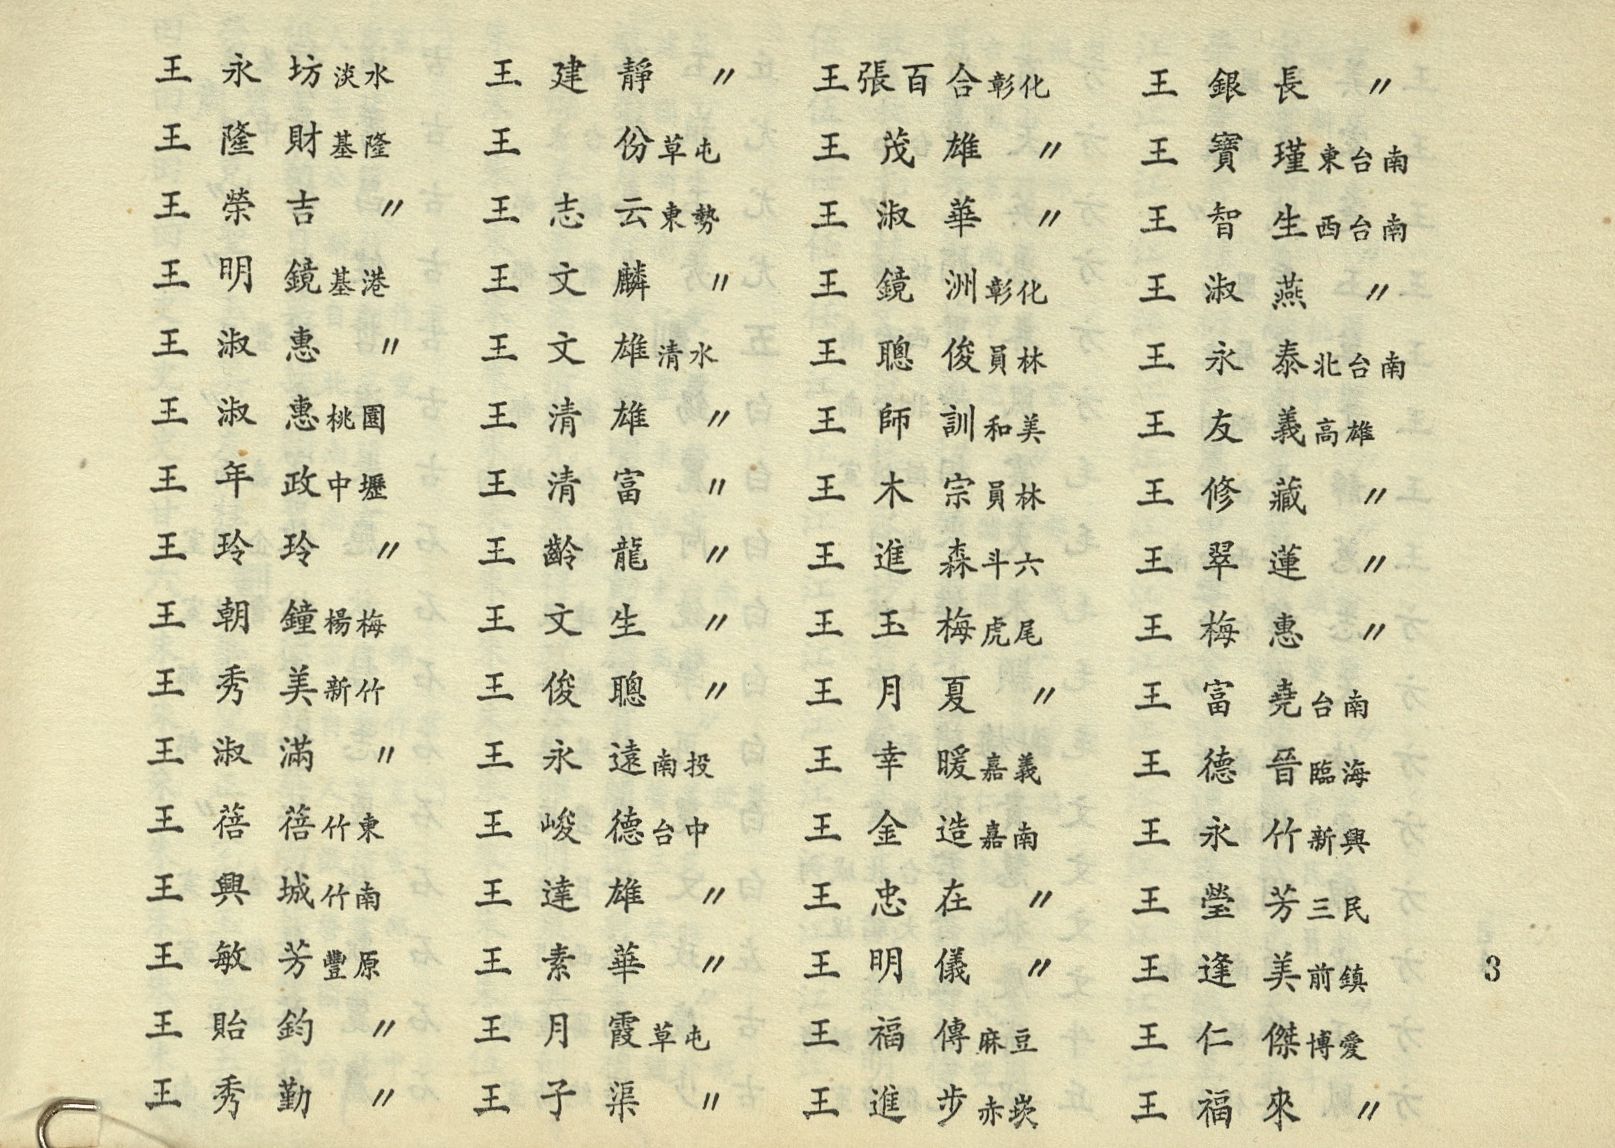 王永坊淡水
王隆財基隆
王榮吉〃
王明鏡基港
王淑惠〃
王淑惠桃園
王年政中壢
王玲玲〃
王朝鐘楊梅
王秀美新竹
王淑滿〃
王蓓蓓竹東
王興城竹南
王敏芳豐原
王貽鈞〃
王秀勤〃
王建靜〃
王份草屯
王志云東勢
王文麟〃
王文雄清水
王清雄〃
王清富〃
王齡龍〃
王文生〃
王俊聰〃
王永遠南投
王峻德台中
王達雄〃
王素華〃
王月霞草屯
王子渠〃
王張百合彰化
王茂雄〃
王淑華〃
王鏡洲彰化
王聰俊員林
王師訓和美
王木宗員林
王進森斗六
王玉梅虎尾
王月夏〃
王幸暖嘉義
王金造嘉南
王忠在〃
王明儀〃
王福傳麻豆
王進步赤崁
王銀長〃
王寶瑾東台南
王智生西台南
王淑燕〃
王永泰北台南
王友義高雄
王修藏〃
王翠蓮〃
王梅惠〃
王富堯台南
王德晉臨海
王永竹新興
王瑩芳三民
王逢美前鎮
王仁傑博愛
王福來〃
3